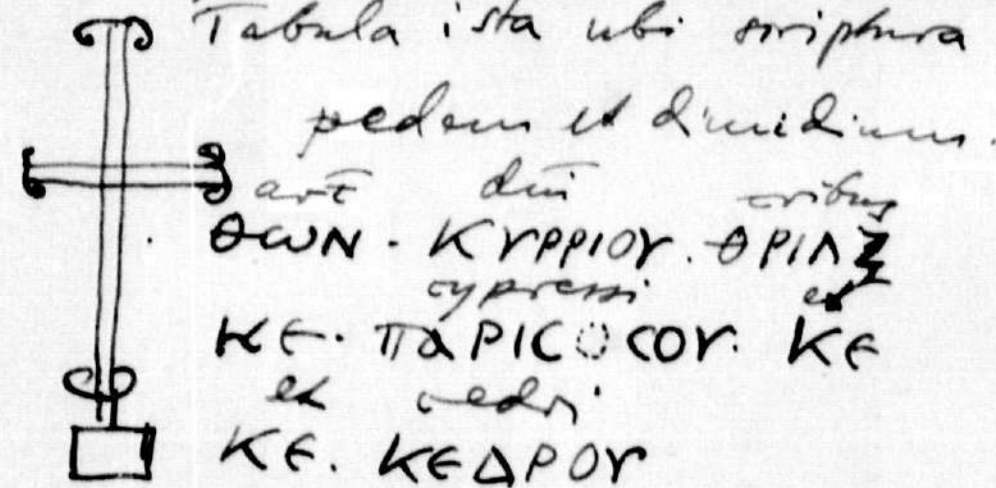 Tabula ista ubi scriptura
pedem et dimidium.
dni tribus
ΘωΝ · ΚΥΡΡΙΟΥ · ΘΡΙΛ
cypressi et
ΚΕ · ΠαΡΙϹΟϹΟΥ · ΚΕ
et cedri
ΚΕ . ΚΕΔΡΟΥ